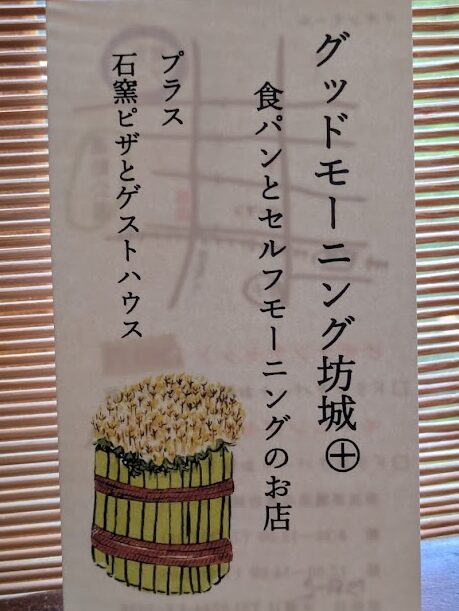 グッドモーニング坊城⊕
食パンとセルフモーニングのお店
プラス
石窯ピザとゲストハウス